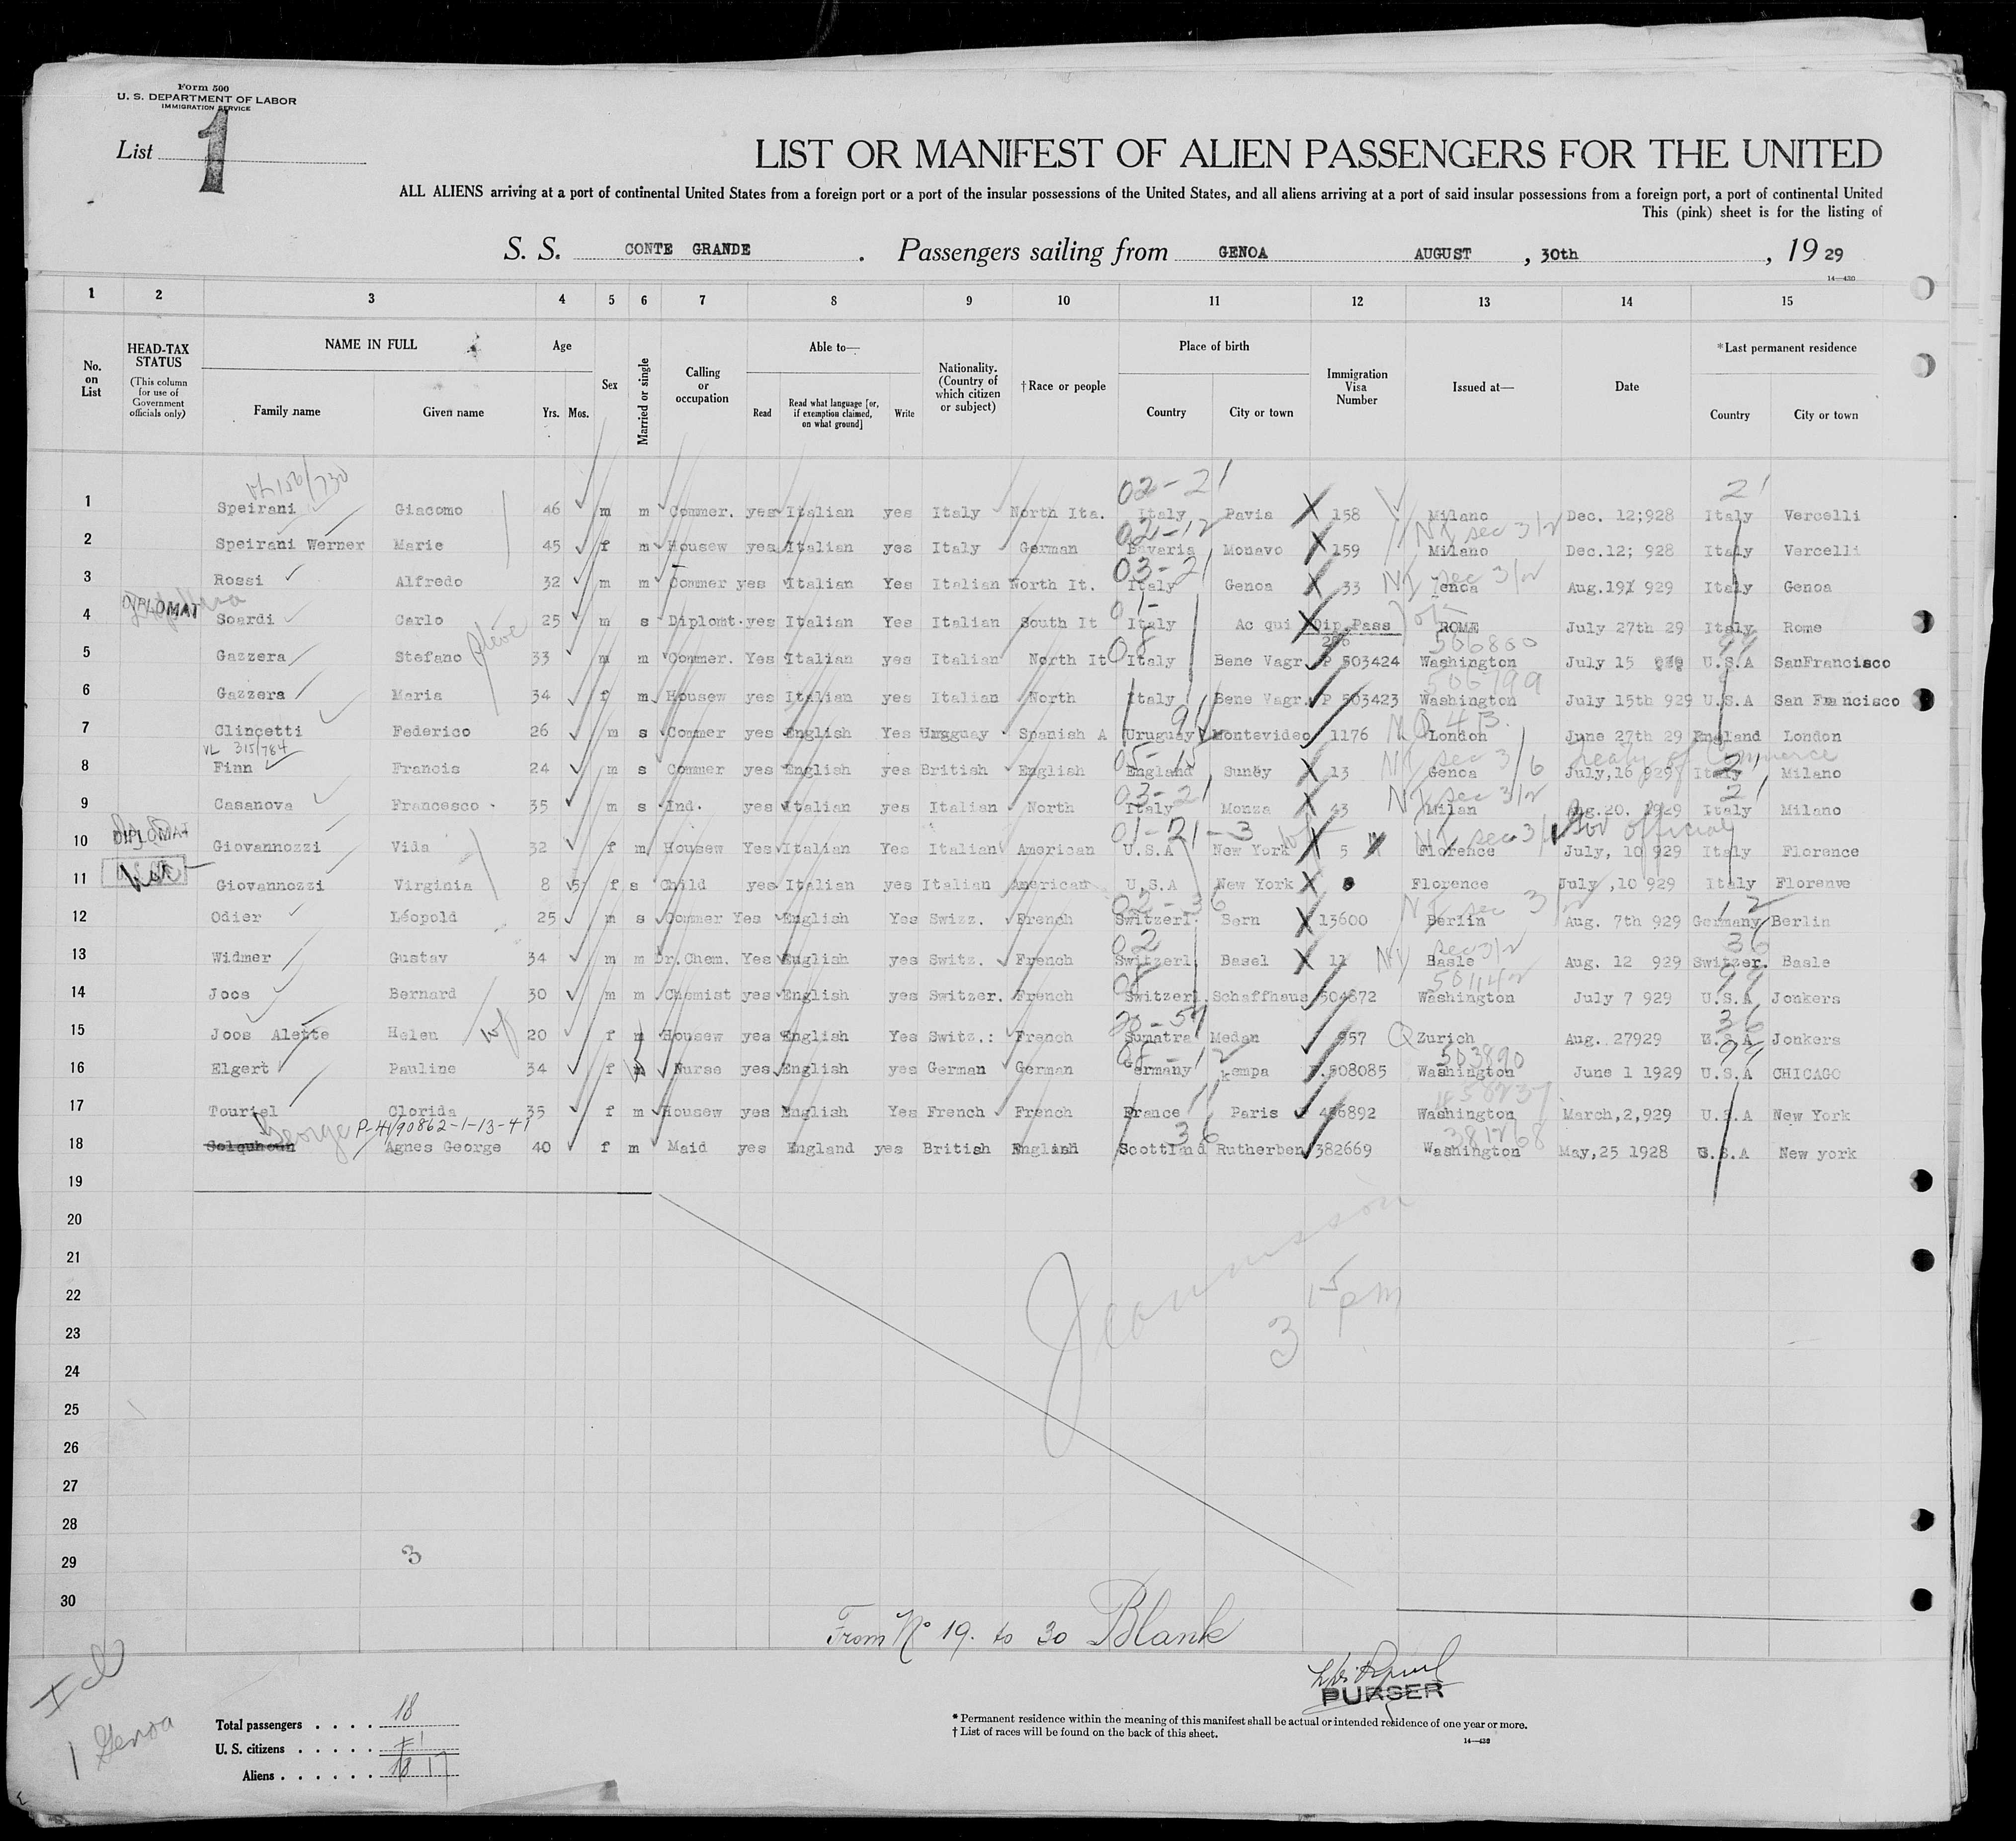 Form 500
U. S. DEPARTMENT OF LABOR
IMMIGRATION SERVICE
List 1
LIST OR MANIFEST OF ALIEN PASSENGERS FOR THE UNITED
ALL ALIENS arriving at a port of continental United States from a foreign port or a port of the insular possessions of the United States, and all aliens arriving at a port of said insular possessions from a foreign port, a port of continental United
This (pink) sheet is for the listing of
S. S. CONTE GRANDE . Passengers sailing from GENOA AUGUST , 30th , 19 29
14—430
1 2 3 4 5 6 7 8 9 10 11 12 13 14 15
No. on List
HEAD-TAX STATUS (This column for use of Government officials only)
NAME IN FULL Family name Given name
Age Yrs. Mos.
Sex
Married or single
Calling or occupation
Able to— Read Read what language [or, if exemption claimed, on what ground] Write
Nationality. (Country of which citizen or subject)
†Race or people
Place of birth Country City or town
Immigration Visa Number
Issued at—
Date
*Last permanent residence Country City or town
02-21 21
1 Speirani Giacomo 46 m m Commer. yes Italian yes Italy North Ita. Italy Pavia 158 Milano Dec. 12;928 Italy Vercelli
02-12 sec 3/2
2 Speirani Werner Marie 45 f m Housew yes Italian yes Italy German Bavaria Monavo 159 Milano Dec.12; 928 Italy Vercelli
03-21 sec 3/2
3 Rossi Alfredo 32 m m Commer yes Italian Yes Italian North It. Italy Genoa 33 Genoa Aug. 929 Italy Genoa
DIPLOMAT
4 Soardi Carlo 25 m s Diplomt. yes Italian Yes Italian South It Italy Ac qui Dip.Pass ROME July 27th 29 Italy Rome
286 506800
5 Gazzera Stefano 33 m m Commer. Yes Italian yes Italian North It Italy Bene Vagr. P 503424 Washington July 15 U.S.A SanFrancisco
506799
6 Gazzera Maria 34 f m Housew yes Italian yes Italian North Italy Bene Vagr. P 503423 Washington July 15th 929 U.S.A San Francisco
7 Clincetti Federico 26 m s Commer yes English Yes Uruguay Spanish A Uruguay Montevideo 1176 London June 27th 29 England London
VL 315/784 05-15 sec 3/6 Treaty of Commerce
8 Finn Francis 24 m s Commer yes English yes British English England 13 Genoa July,16 929 Italy Milano
03-21 sec 3/2 21
9 Casanova Francesco 35 m s Ind. yes Italian yes Italian North Italy Monza 43 Milan Aug.20. 1929 Italy Milano
DIPLOMAT 01-21-3 sec 3/1 Gov official
10 Giovannozzi Vida 32 f m Housew Yes Italian Yes Italian American U.S.A New York 5 Florence July, 10 929 Italy Florence
11 Giovannozzi Virginia 8 5 f s Child yes Italian yes Italian American U.S.A New York Florence July ,10 929 Italy Florenve
02-36 sec 3/2 12
12 Odier Léopold 25 m s Commer Yes English Yes Swizz. French Switzerl. Bern 13600 Berlin Aug. 7th 929 Germany Berlin
02 sec 3/2 36
13 Widmer Gustav 34 m m Dr.Chem. Yes English yes Switz. French Switzerl Basel 11 Basle Aug. 12 929 Switzer. Basle
99
14 Joos Bernard 30 m m Chemist yes English yes Switzer. French Switzerl. Schaffhaus 504872 Washington July 7 929 U.S.A Jonkers
36
15 Joos Alette Helen 20 f m Housew yes English Yes Switz.: French Sumatra Medan 957 Q Zurich Aug. 27929 U.S.A Jonkers
503890 99
16 Elgert Pauline 34 f Nurse yes English yes German German Germany kempa P.508085 Washington June 1 1929 U.S.A CHICAGO
17 Touriel Clorida 35 f m Housew yes English Yes French French France Paris 486892 Washington March,2,929 U.S.A New York
George P-4190862-1-13-41 36 381268
18 Colquhoun Agnes George 40 f m Maid yes England yes British English Scottland Rutherben 382669 Washington May,25 1928 U.S.A New york
19
20
21
22
23
24
25
26
27
28
29
30
3 15 pm
3
From No 19. to 30 Blank
PURSER
1 Genoa
Total passengers . . . . 18
U. S. citizens . . . . . 1
Aliens . . . . . . 17
* Permanent residence within the meaning of this manifest shall be actual or intended residence of one year or more.
† List of races will be found on the back of this sheet.
14—430